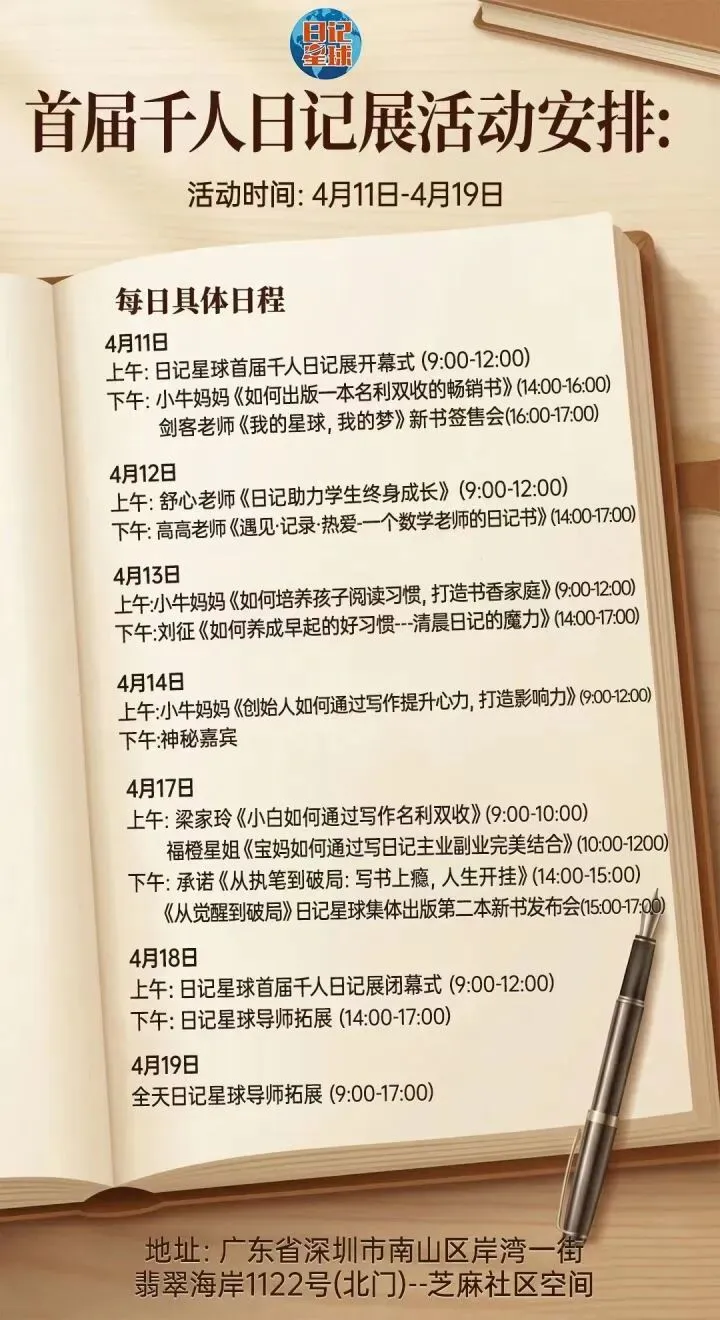 日记
星球
首届千人日记展活动安排:
活动时间: 4月11日-4月19日
每日具体日程
4月11日
上午: 日记星球首届千人日记展开幕式 (9:00-12:00)
下午: 小牛妈妈《如何出版一本名利双收的畅销书》(14:00-16:00)
剑客老师《我的星球, 我的梦》新书签售会(16:00-17:00)
4月12日
上午: 舒心老师《日记助力学生终身成长》 (9:00-12:00)
下午: 高高老师《遇见·记录·热爱-一个数学老师的日记书》(14:00-17:00)
4月13日
上午:小牛妈妈《如何培养孩子阅读习惯, 打造书香家庭》(9:00-12:00)
下午:刘征《如何养成早起的好习惯---清晨日记的魔力》(14:00-17:00)
4月14日
上午:小牛妈妈《创始人如何通过写作提升心力, 打造影响力》(9:00-12:00)
下午:神秘嘉宾
4月17日
上午: 梁家玲《小白如何通过写作名利双收》(9:00-10:00)
福橙星姐《宝妈如何通过写日记主业副业完美结合》(10:00-1200)
下午: 承诺《从执笔到破局: 写书上瘾, 人生开挂》(14:00-15:00)
《从觉醒到破局》日记星球集体出版第二本新书发布会(15:00-17:00)
4月18日
上午: 日记星球首届千人日记展闭幕式 (9:00-12:00)
下午: 日记星球导师拓展 (14:00-17:00)
4月19日
全天日记星球导师拓展 (9:00-17:00)
地址: 广东省深圳市南山区岸湾一街
翡翠海岸1122号(北门)--芝麻社区空间